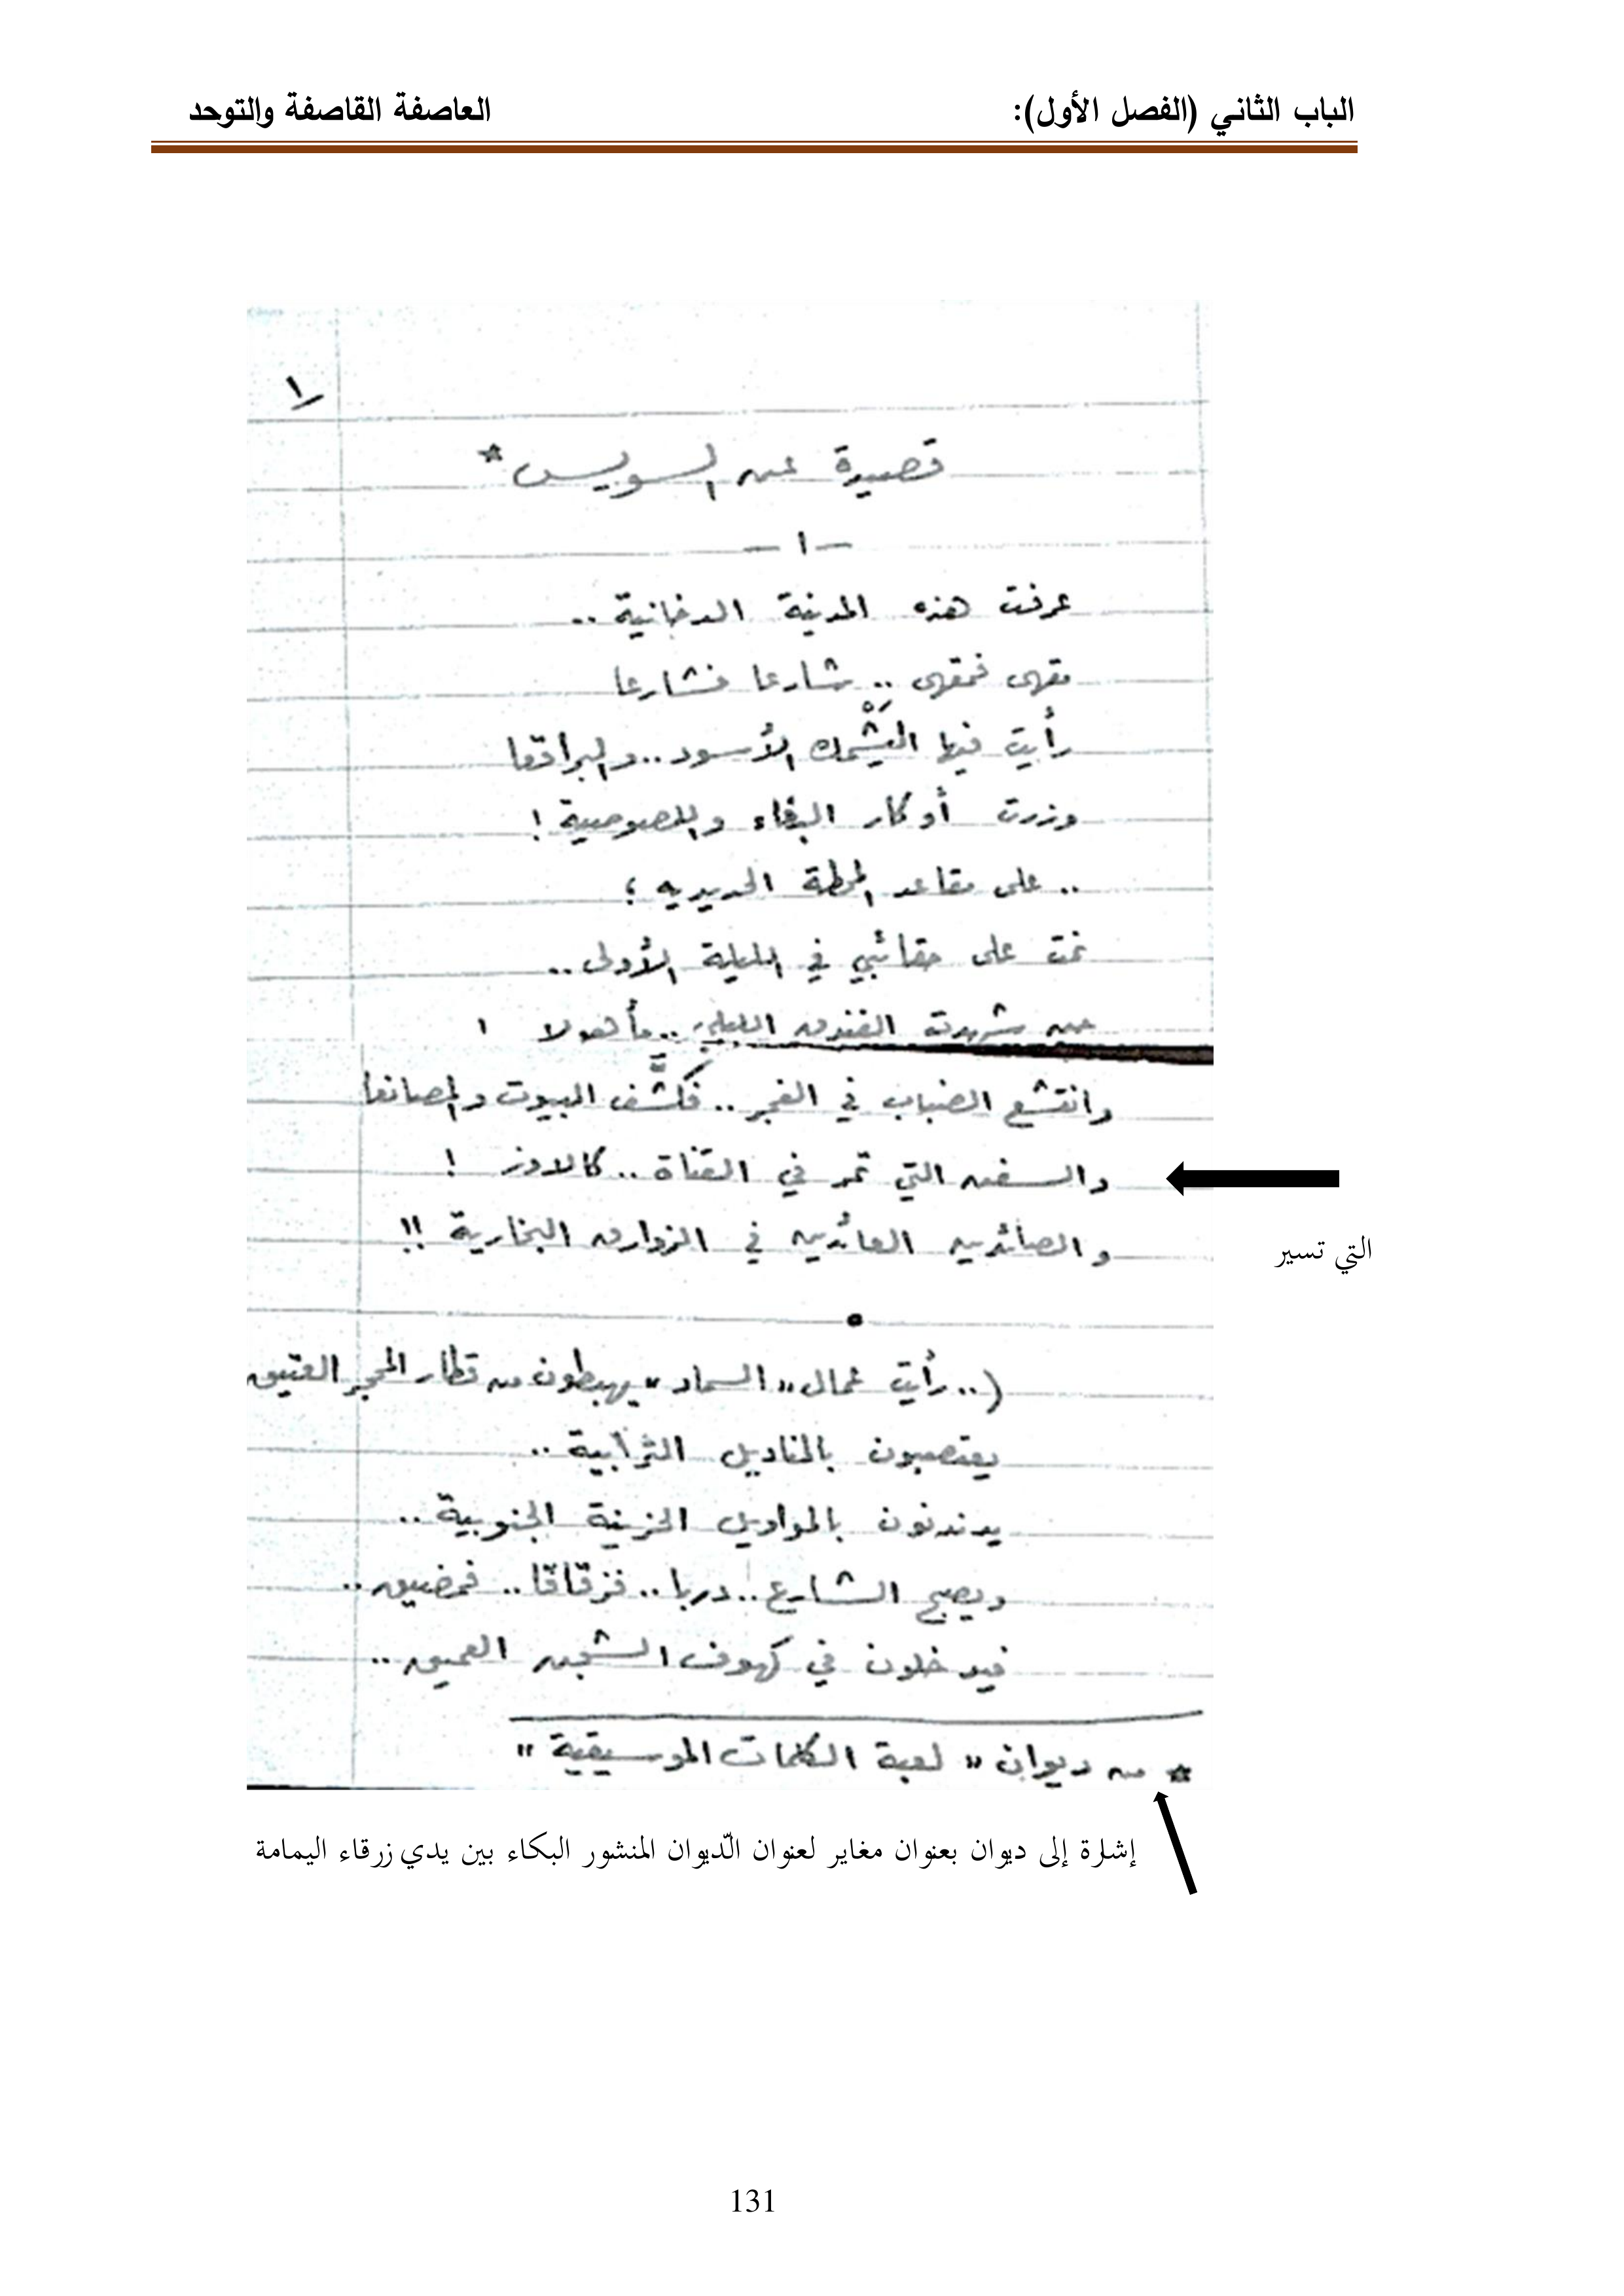 الباب الثاني (الفصل الأول): العاصفة القاصفة والتوحد
١
قصيدة عن السويس *
— ١ —
عرفت هذه المدينة الدخانية ..
مقهى فمقهى .. شارعا فشارعا
رأيت فيها اليَشْمك الأسود .. والبراقعا
وزرت أوكار البغاء واللصوصية !
.. على مقاعد المحطة الحديديه ؛
نمت على حقائبي في الليلة الأولى ..
حين شهدت الفندق الليلي .. مأهولا !
وانقشع الضباب في الفجر .. فكشَّف البيوت والمصانعا
والسفن التي تمر في القناة .. كالاوز !
التي تسير
والصائدين العائدين في الزوارق البخارية !!
(.. رأيت عمال " السماد " يهبطون من قطار المحجر العتيق
يعتصبون بالمناديل الترابية ..
يدندنون بالمواويل الحزينة الجنوبية ..
ويصبح الشارع .. دربا .. فزقاقا .. فمضيق ..
فيدخلون في كهوف الشجن العميق ..
* من ديوان " لعبة الكلمات الموسيقية "
إشارة إلى ديوان بعنوان مغاير لعنوان الدّيوان المنشور البكاء بين يدي زرقاء اليمامة
131